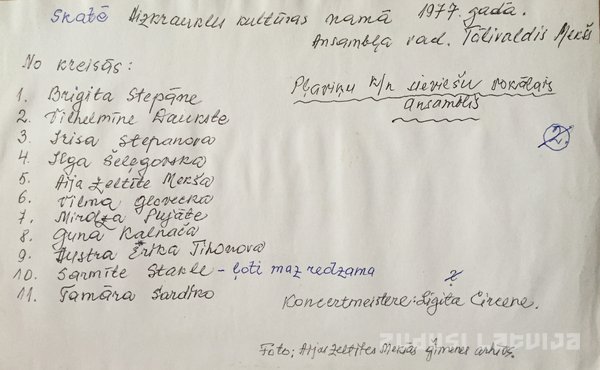 Skatē Aizkraukles kultūras namā 1977. gadā.
Ansambļa vad. Tālivaldis Mekšs
No kreisās:
Pļaviņu k/n sieviešu vokālais
ansamblis
1. Brigita Stepāne
2. Vilhelmīne Daukste
2.
3. Irisa Stepanova
4. Ilga Šeļegovska
5. Aija Zeltīte Mekša
6. Vilma Glovecka
7. Mirdza Pujāte
8. Guna Kalnača
9. Austra Ērika Tihonova
10. Sarmīte Stakle - ļoti maz redzama
11. Tamāra Sardiko
?
Koncertmeistere: Sigita Circene.
ZUDUSI LATVIJA
Foto: Aijas Zeltītes Mekšas ģimenes arhīvs.